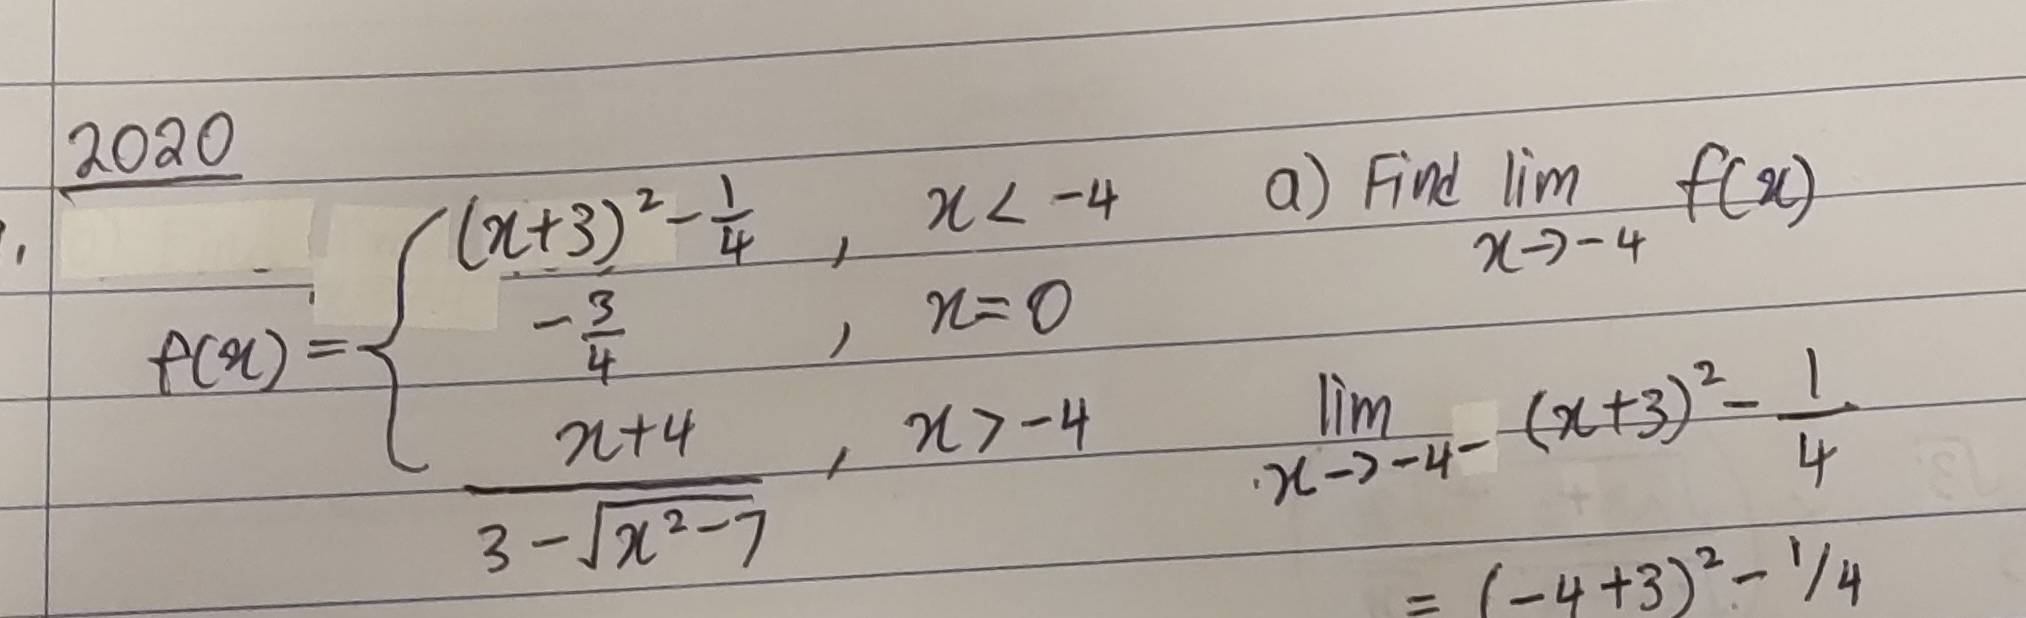 2020
1.
f(x) = { (x+3)² - 1/4 , x < -4
-3/4 , x = 0
x+4 / 3 - √(x² - 7) , x > -4
a) Find lim x→-4 f(x)
lim x→-4⁻ (x+3)² - 1/4
= (-4+3)² - 1/4